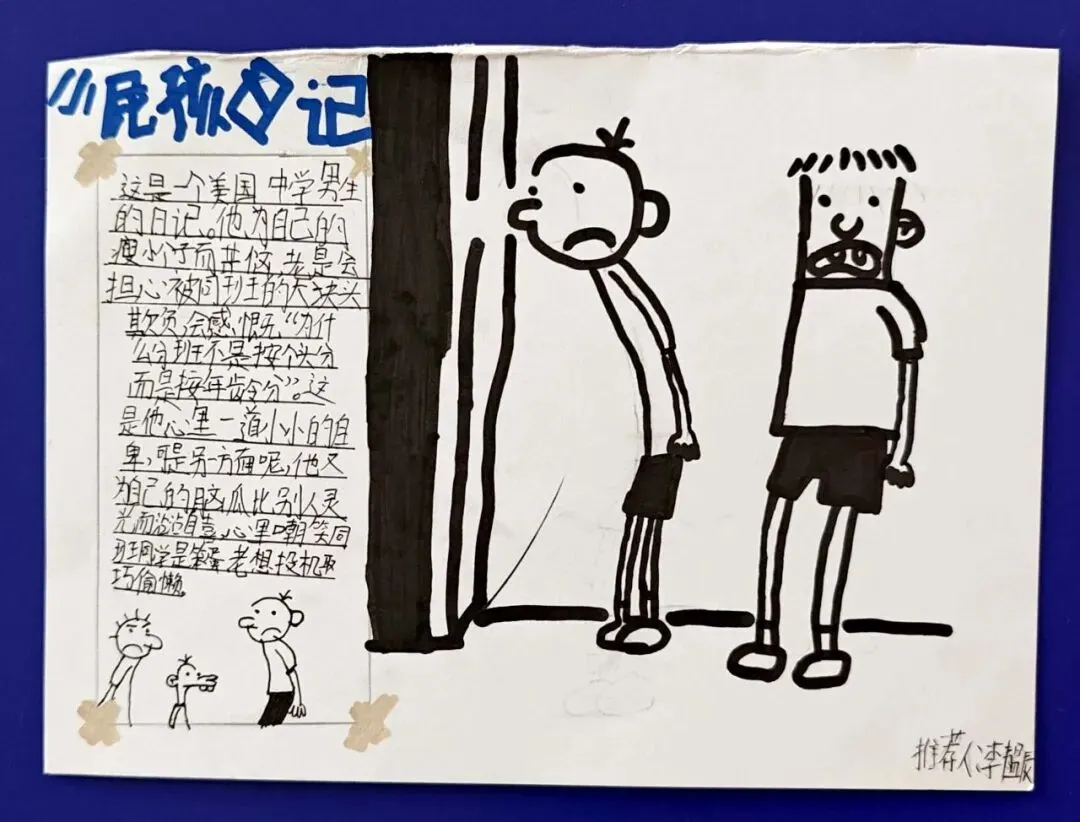 小屁孩日记
这是一个美国中学男生
的日记。他为自己的
瘦小个子而苦恼,老是会
担心被同班的大块头
欺负,会感慨“为什
么分班不是按个头分
而是按年龄分”。这
是他心里一道小小的自
卑,可是另一方面呢,他又
为自己的脑瓜比别人灵
光而沾沾自喜,心里嘲笑同
班同学是笨蛋,老想投机取
巧偷懒。
推荐人李